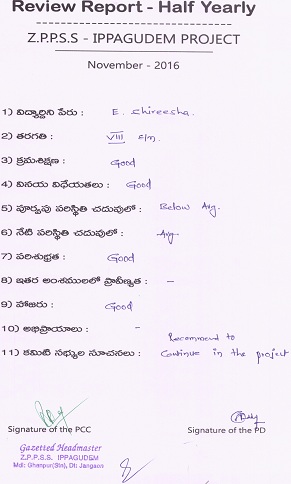 Review Report - Half Yearly
Z.P.P.S.S - IPPAGUDEM PROJECT
November - 2016
1) విద్యార్థిని పేరు : E. Shireesha.
2) తరగతి : VIII E/M.
3) క్రమశిక్షణ : Good
4) వినయ విధేయతలు : Good
5) పూర్వపు పరిస్థితి చదువులో : Below Avg.
6) నేటి పరిస్థితి చదువులో : Avg
7) పరిశుభ్రత : Good
8) ఇతర అంశములలో ప్రావీణ్యత : -
9) హాజరు : Good
10) అభిప్రాయాలు : -
11) కమిటి సభ్యుల సూచనలు : Recommend to
Continue in the project
Signature of the PCC
Signature of the PD
Gazetted Headmaster
Z.P.P.S.S. IPPAGUDEM
Mdl: Ghanpur(Stn), Dt: Jangaon